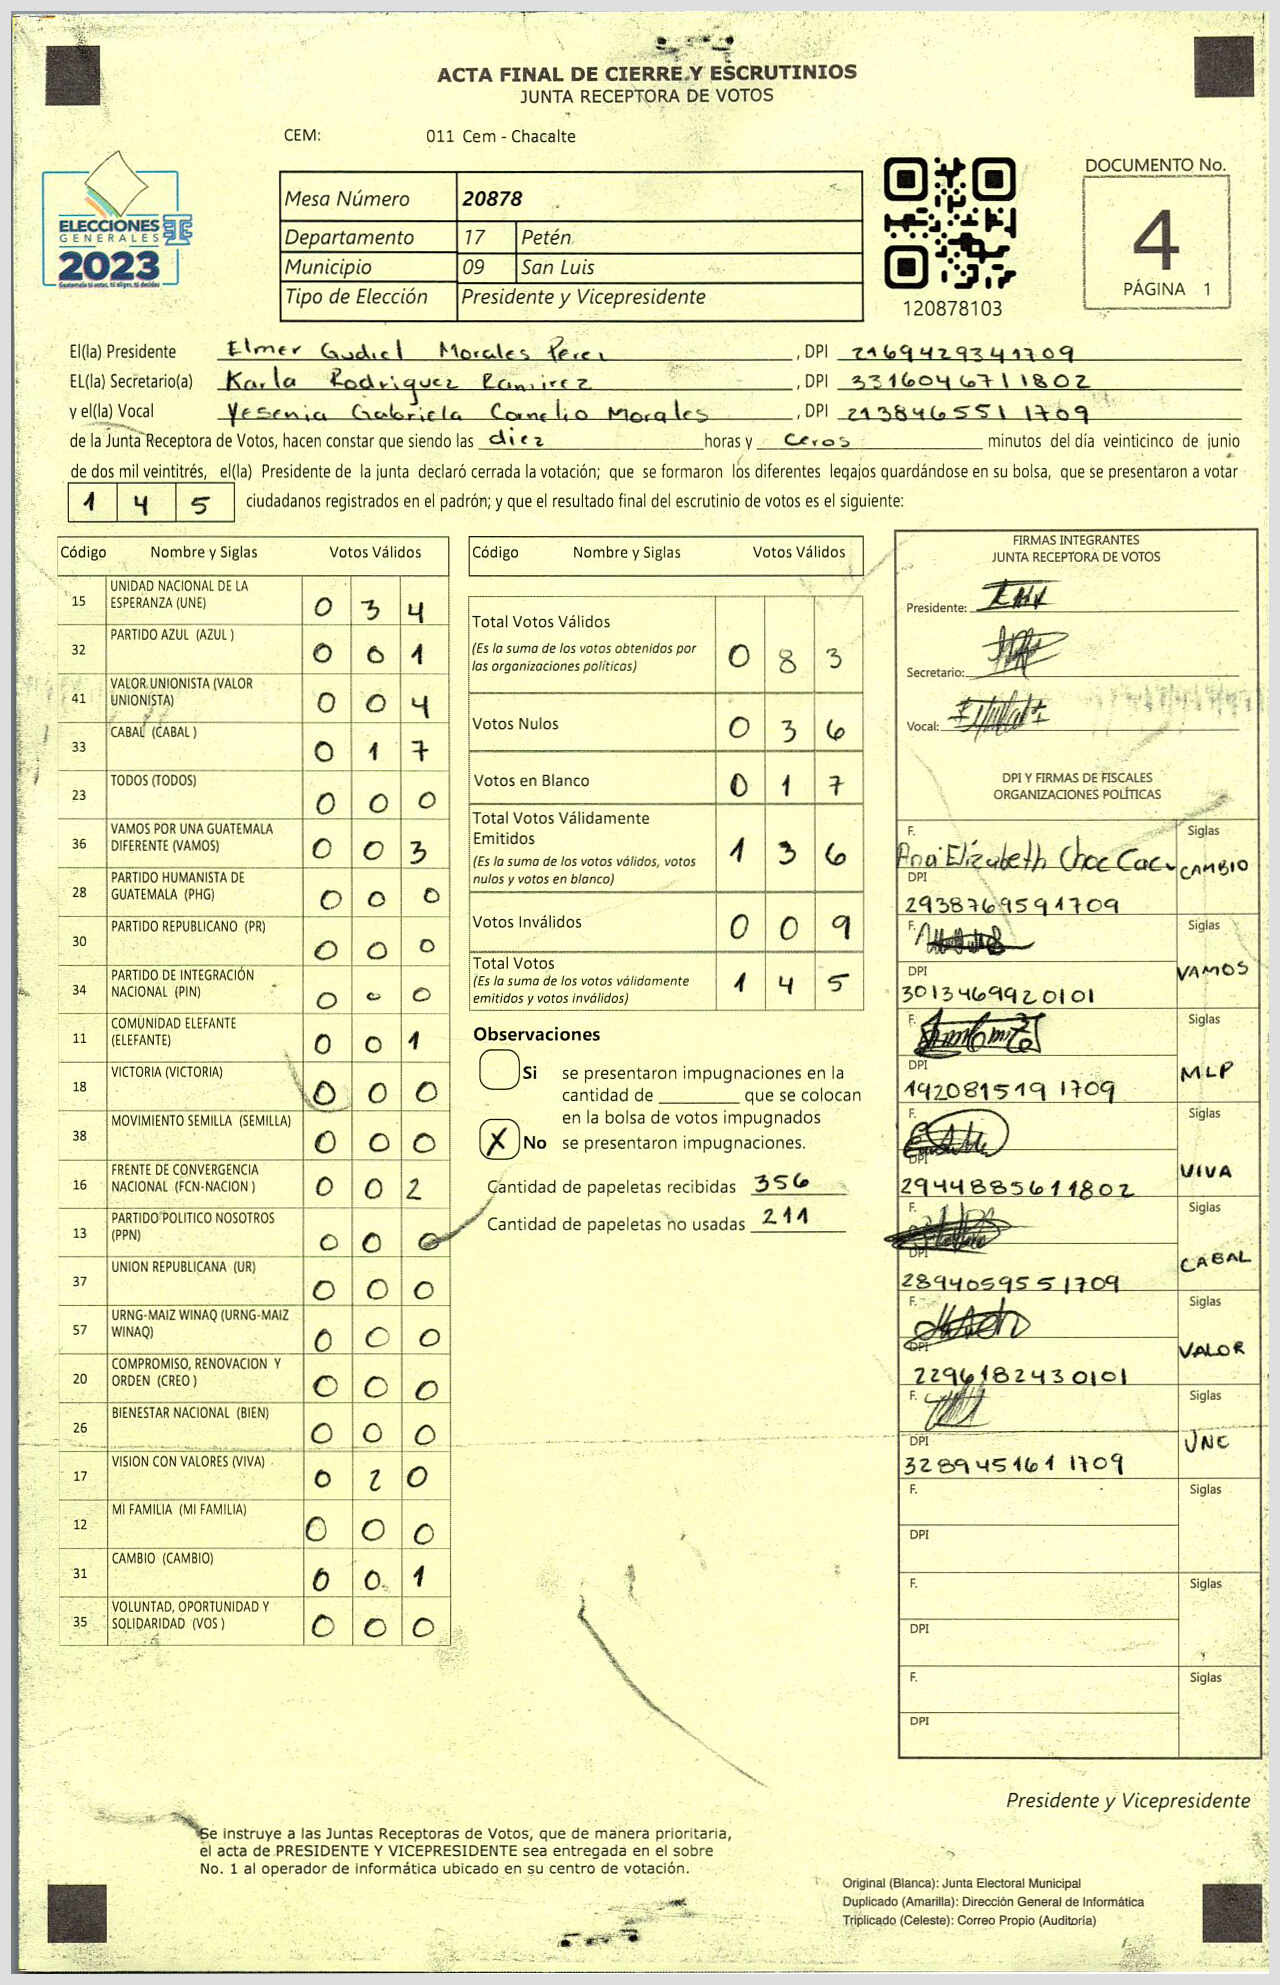 ACTA FINAL DE CIERRE Y ESCRUTINIOS
JUNTA RECEPTORA DE VOTOS
CEM: 011 Cem - Chacalte
ELECCIONES
GENERALES
2023
Guatemala tú votas, tú eliges, tú decides
Mesa Número 20878
Departamento 17 Petén
Municipio 09 San Luis
Tipo de Elección Presidente y Vicepresidente
120878103
DOCUMENTO No.
4
PÁGINA 1
El(la) Presidente Elmer Gudiel Morales Perez , DPI 2169429341709
EL(la) Secretario(a) Karla Rodriguez Ramirez , DPI 3316046711802
y el(la) Vocal Yesenia Gabriela Cornelio Morales , DPI 2138465511709
de la Junta Receptora de Votos, hacen constar que siendo las diez horas y ceros minutos del día veinticinco de junio
de dos mil veintitrés, el(la) Presidente de la junta declaró cerrada la votación; que se formaron los diferentes legajos guardándose en su bolsa, que se presentaron a votar
1 4 5 ciudadanos registrados en el padrón; y que el resultado final del escrutinio de votos es el siguiente:
Código Nombre y Siglas Votos Válidos
15 UNIDAD NACIONAL DE LA ESPERANZA (UNE) 0 3 4
32 PARTIDO AZUL (AZUL ) 0 0 1
41 VALOR UNIONISTA (VALOR UNIONISTA) 0 0 4
33 CABAL (CABAL ) 0 1 7
23 TODOS (TODOS) 0 0 0
36 VAMOS POR UNA GUATEMALA DIFERENTE (VAMOS) 0 0 3
28 PARTIDO HUMANISTA DE GUATEMALA (PHG) 0 0 0
30 PARTIDO REPUBLICANO (PR) 0 0 0
34 PARTIDO DE INTEGRACIÓN NACIONAL (PIN) 0 0 0
11 COMUNIDAD ELEFANTE (ELEFANTE) 0 0 1
18 VICTORIA (VICTORIA) 0 0 0
38 MOVIMIENTO SEMILLA (SEMILLA) 0 0 0
16 FRENTE DE CONVERGENCIA NACIONAL (FCN-NACION ) 0 0 2
13 PARTIDO POLITICO NOSOTROS (PPN) 0 0 0
37 UNION REPUBLICANA (UR) 0 0 0
57 URNG-MAIZ WINAQ (URNG-MAIZ WINAQ) 0 0 0
20 COMPROMISO, RENOVACION Y ORDEN (CREO ) 0 0 0
26 BIENESTAR NACIONAL (BIEN) 0 0 0
17 VISION CON VALORES (VIVA) 0 2 0
12 MI FAMILIA (MI FAMILIA) 0 0 0
31 CAMBIO (CAMBIO) 0 0 1
35 VOLUNTAD, OPORTUNIDAD Y SOLIDARIDAD (VOS ) 0 0 0
Código Nombre y Siglas Votos Válidos
Total Votos Válidos 0 8 3
(Es la suma de los votos obtenidos por
las organizaciones políticas)
Votos Nulos 0 3 6
Votos en Blanco 0 1 7
Total Votos Válidamente
Emitidos 1 3 6
(Es la suma de los votos válidos, votos
nulos y votos en blanco)
Votos Inválidos 0 0 9
Total Votos 1 4 5
(Es la suma de los votos válidamente
emitidos y votos inválidos)
Observaciones
Si se presentaron impugnaciones en la
cantidad de ________ que se colocan
en la bolsa de votos impugnados
X No se presentaron impugnaciones.
Cantidad de papeletas recibidas 356
Cantidad de papeletas no usadas 211
FIRMAS INTEGRANTES
JUNTA RECEPTORA DE VOTOS
Presidente:
Secretario:
Vocal:
DPI Y FIRMAS DE FISCALES
ORGANIZACIONES POLÍTICAS
F. Siglas
Ana Elizabeth Choc Cacu CAMBIO
DPI
2938769591709
F. Siglas
VAMOS
DPI
3013469920101
F. Siglas
MLP
DPI
1920815191709
F. Siglas
VIVA
DPI
2944885611802
F. Siglas
CABAL
DPI
2894059551709
F. Siglas
VALOR
DPI
2296182430101
F. Siglas
UNE
DPI
3289451611709
F. Siglas
DPI
F. Siglas
DPI
F. Siglas
DPI
Presidente y Vicepresidente
Se instruye a las Juntas Receptoras de Votos, que de manera prioritaria,
el acta de PRESIDENTE Y VICEPRESIDENTE sea entregada en el sobre
No. 1 al operador de informática ubicado en su centro de votación.
Original (Blanca): Junta Electoral Municipal
Duplicado (Amarilla): Dirección General de Informática
Triplicado (Celeste): Correo Propio (Auditoría)